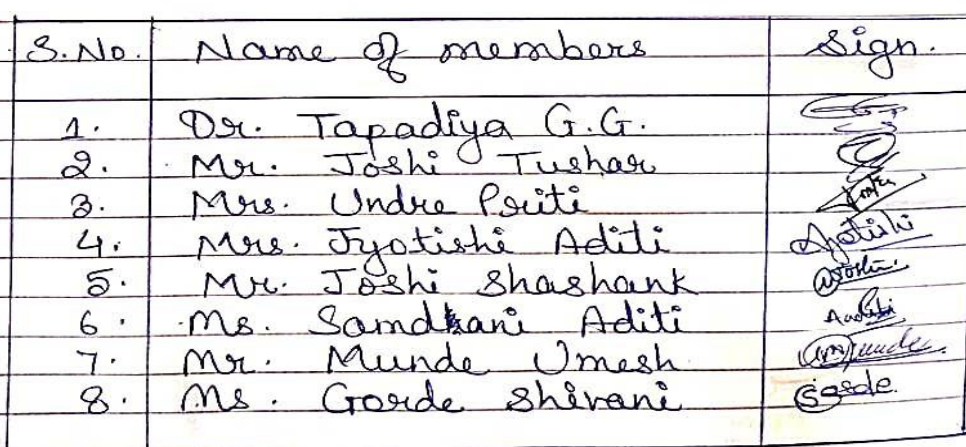 S.No. Name of members Sign.
1. Dr. Tapadiya G.G.
2. Mr. Joshi Tushar
3. Mrs. Undre Priti
4. Mrs. Jyotishi Aditi
5. Mr. Joshi Shashank
6. Ms. Samdhani Aditi
7. Mr. Munde Umesh
8. Ms. Gorde Shivani